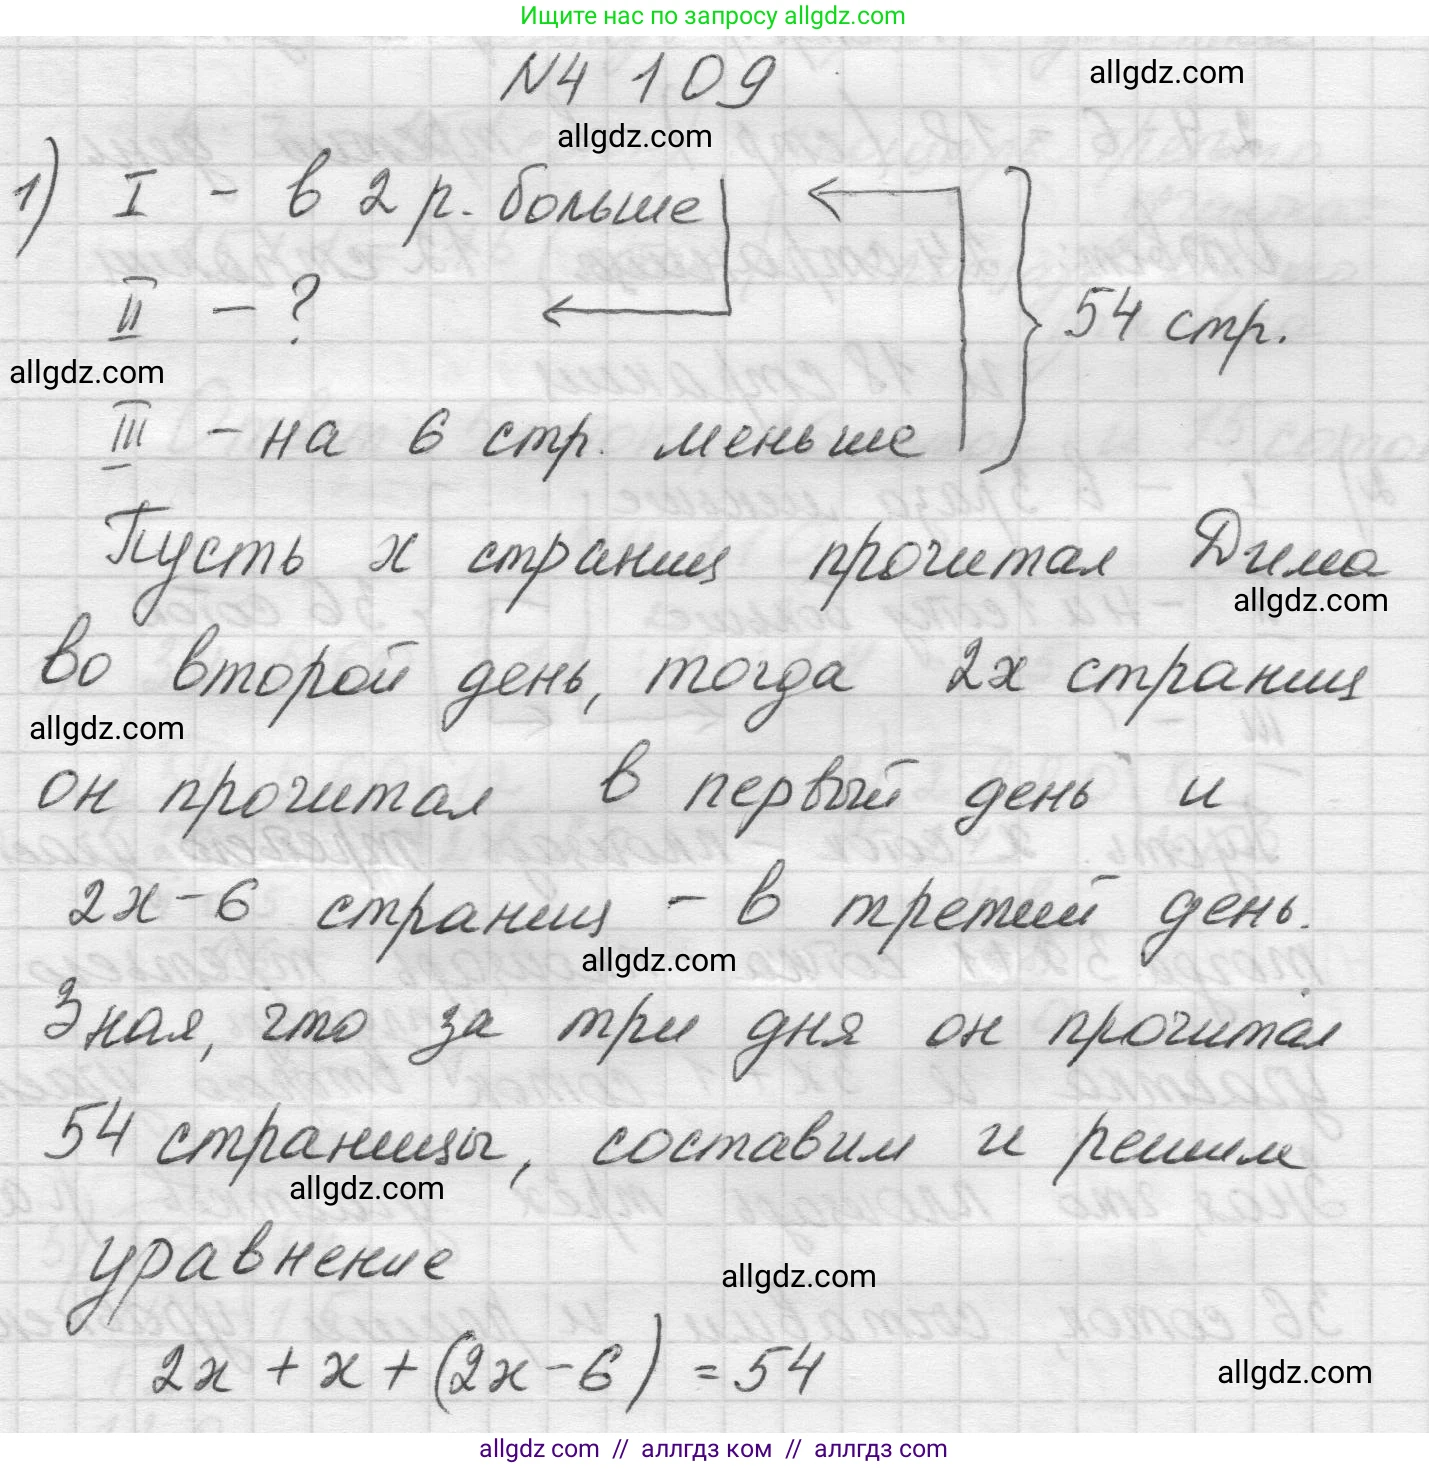 Ищите нас по запросу allgdz.com
№4 109
allgdz.com
allgdz.com
1) I - в 2 р. больше
II - ?
54 стр.
allgdz.com
III - на 6 стр. меньше
Пусть х страниц прочитал Дима
allgdz.com
во второй день, тогда 2х страниц
allgdz.com
он прочитал в первый день и
2х-6 страниц - в третий день.
allgdz.com
Зная, что за три дня он прочитал
54 страницы, составим и решим
allgdz.com
уравнение
allgdz.com
2х + х + (2х - 6) = 54
allgdz.com
allgdz com // аллгдз ком // аллгдз com